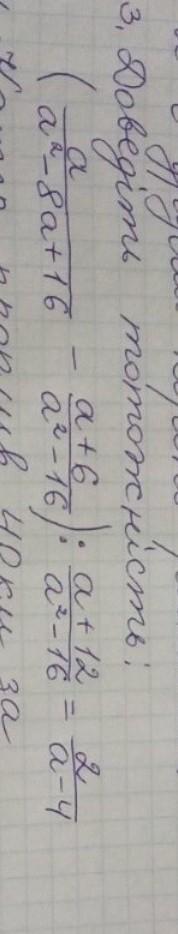 3. Доведіть тотожність:
(a/(a²-8a+16) - (a+6)/(a²-16)) : (a+12)/(a²-16) = 2/(a-4)
40км за